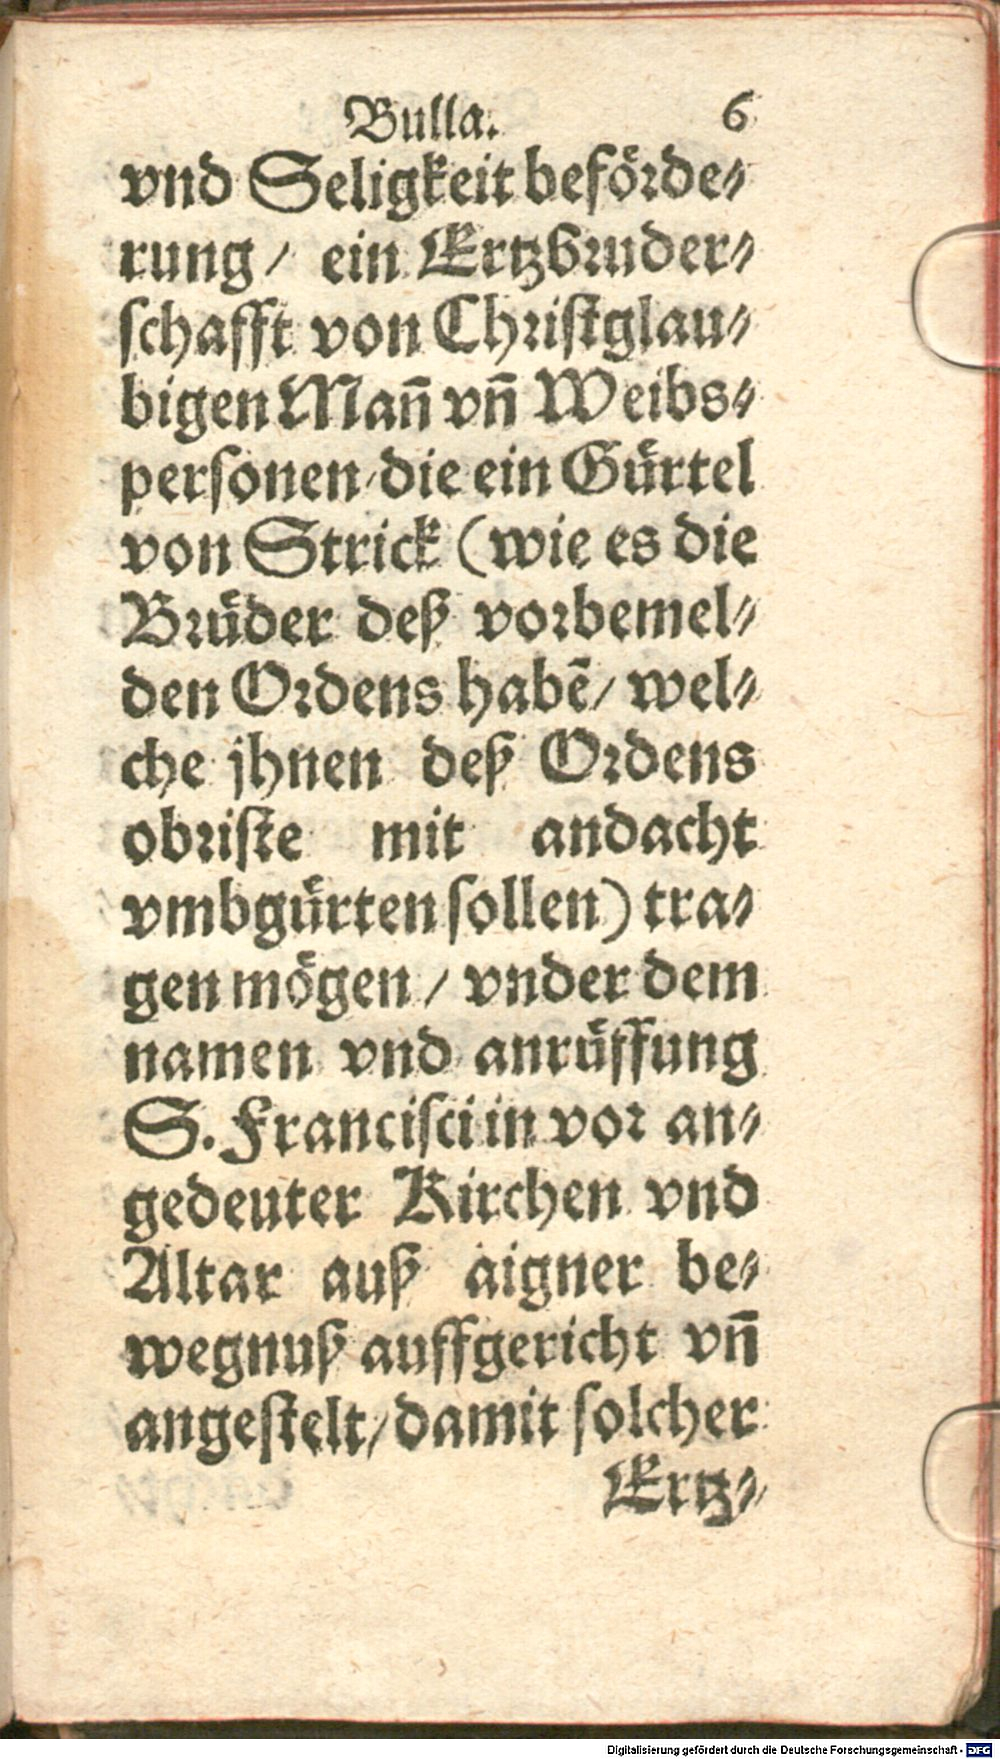 Bulla. 6
vnd Seligkeit befoͤrde⸗
rung/ ein Ertzbruder⸗
ſchafft von Chriſtglau⸗
bigen Mañ vñ Weibs⸗
perſonen/die ein Guͤrtel
von Strick (wie es die
Bruͤder deß vorbemel⸗
den Ordens habẽ/ wel⸗
che jhnen deß Ordens
obriſte mit andacht
vmbguͤrten ſollen) tra⸗
gen moͤgen / vnder dem
namen vnd anruͤffung
S. Franciſci in vor an⸗
gedeuter Kirchen vnd
Altar auß aigner be⸗
wegnuß auffgericht vñ
angeſtelt/damit ſolcher
Ertz⸗
Digitalisierung gefördert durch die Deutsche Forschungsgemeinschaft - DFG